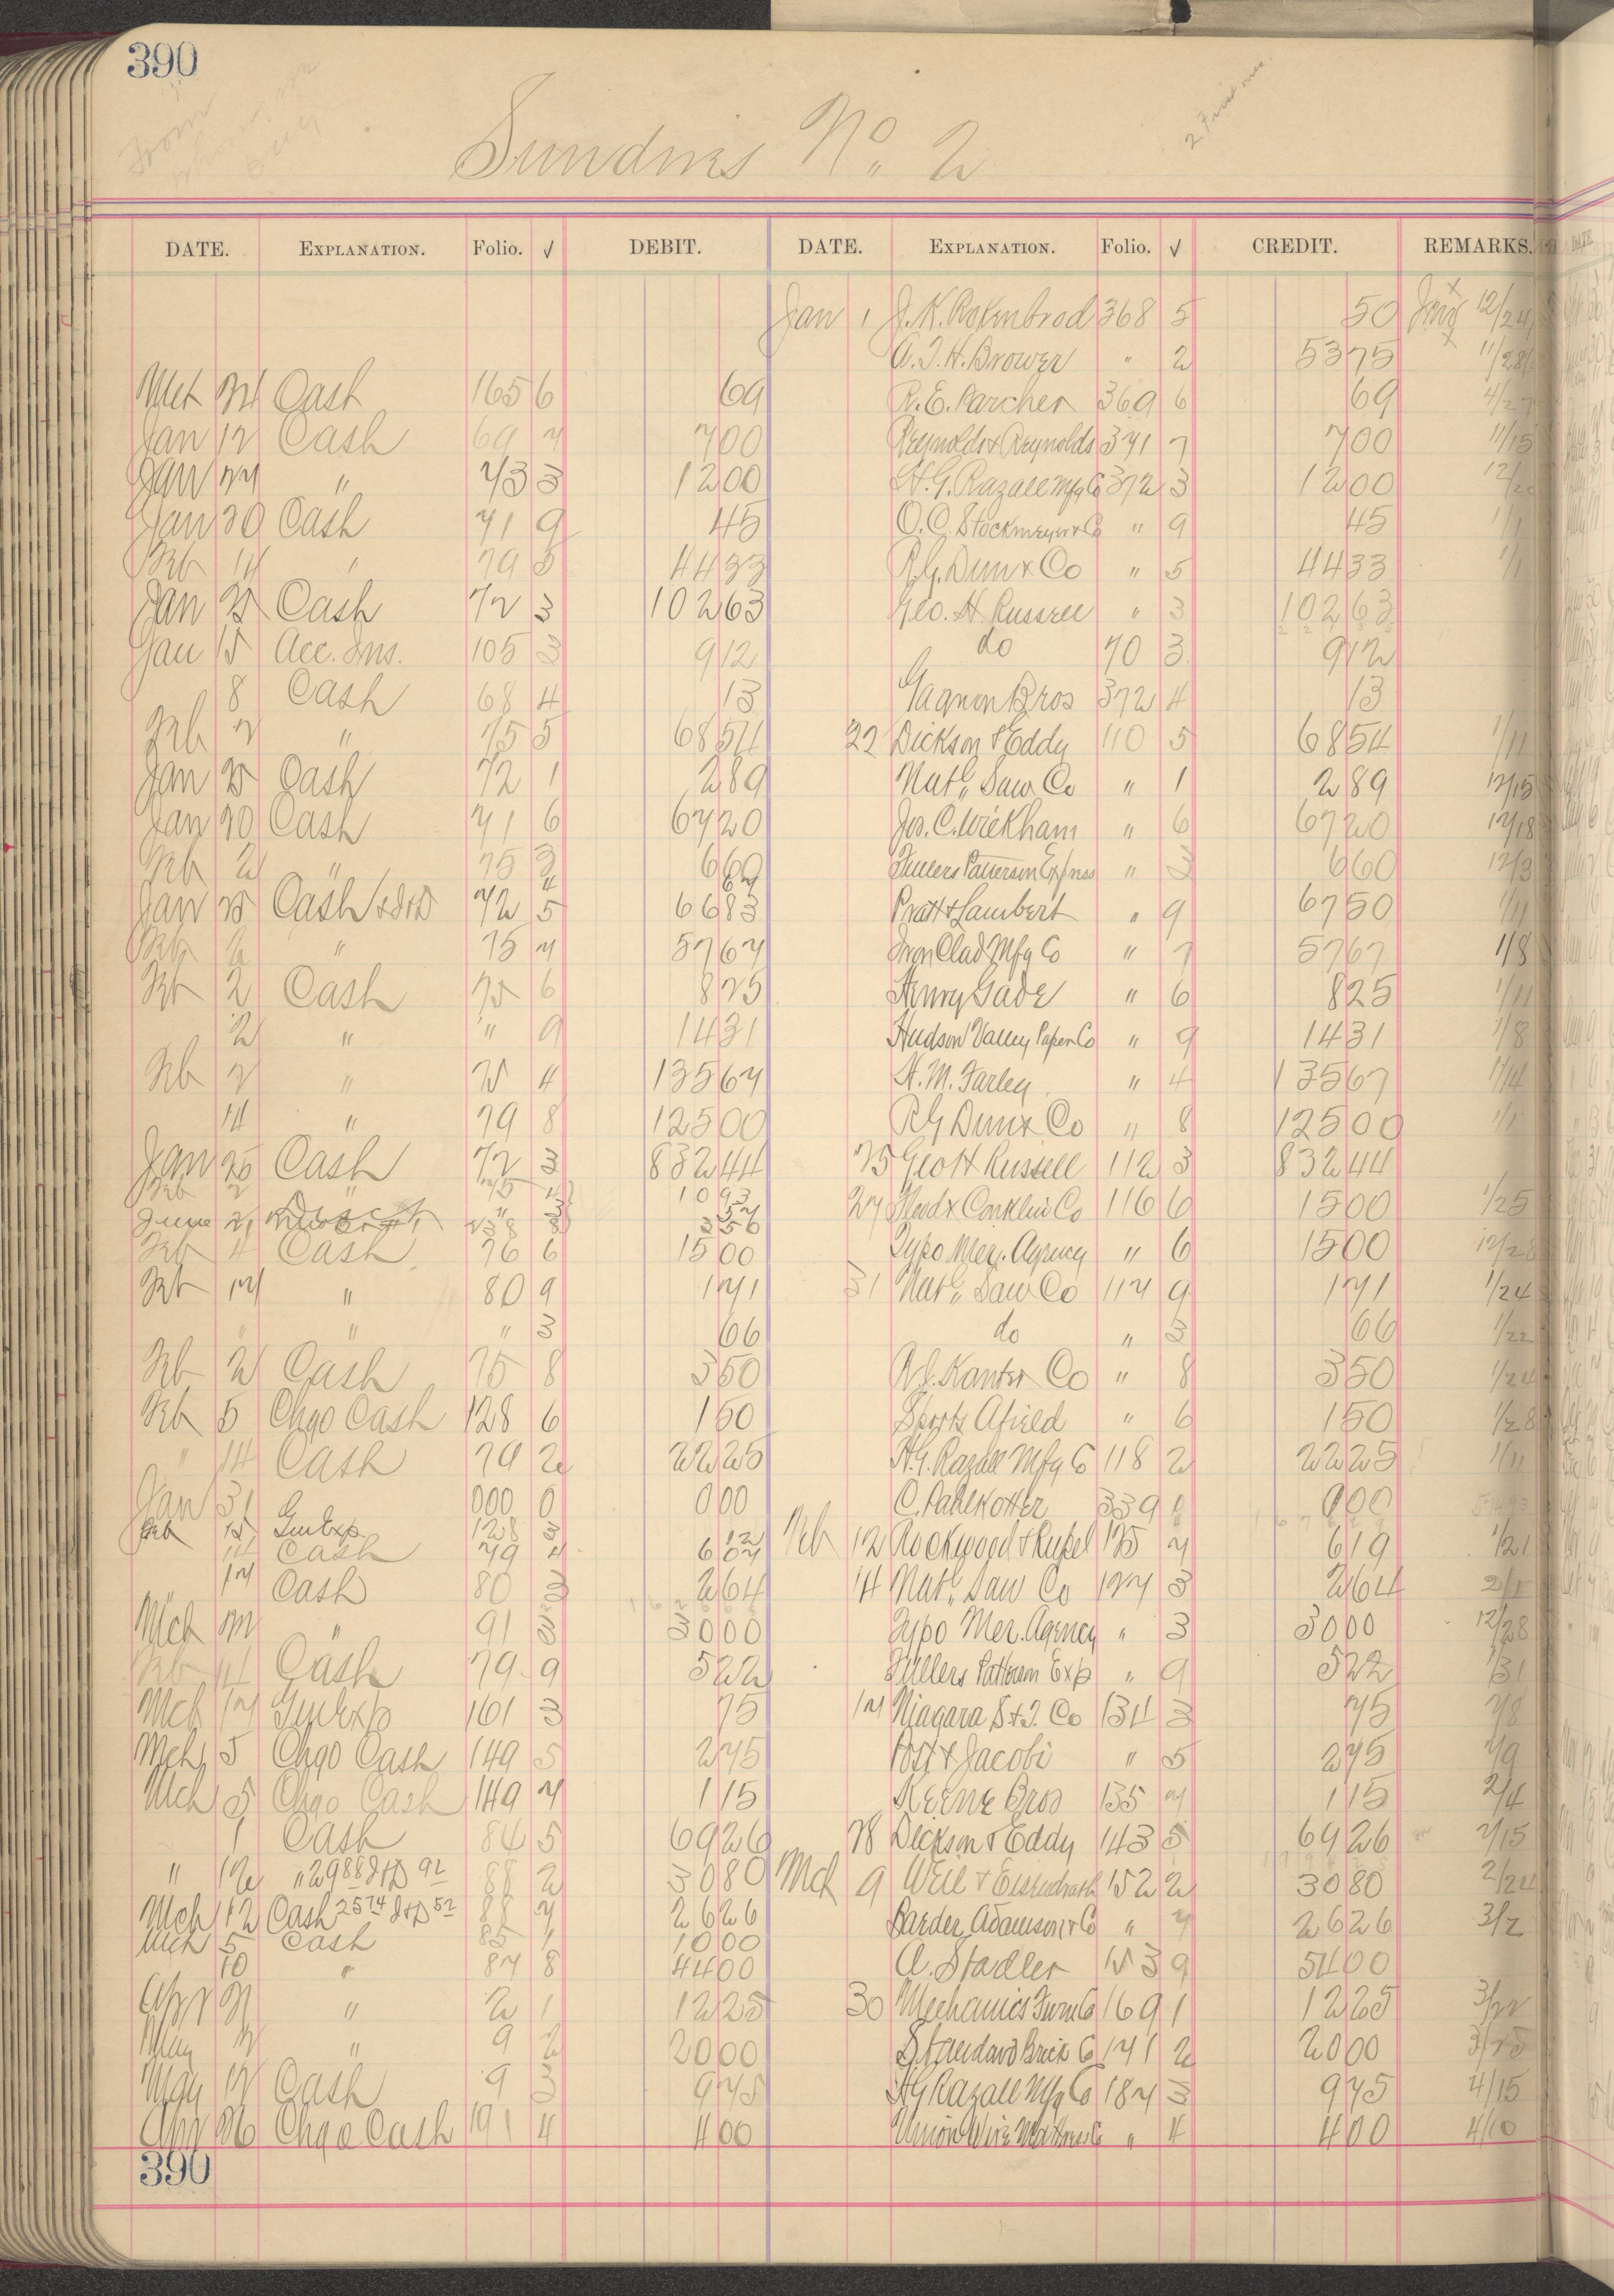 390
Sundries No. 2
DATE. EXPLANATION. Folio. √ DEBIT. DATE. EXPLANATION. Folio. √ CREDIT. REMARKS.
Jan 1 368 5 50 12/24
A.T.H. Brower " 2 53 75 11/28
Mch Cash 165 6 69 R.E. Parcher 369 6 69
Jan 12 Cash 69 7 7 00 Reynolds & Reynolds 371 7 7 00 11/15
Jan " 73 3 12 00 H.G. Razall Mfg Co 372 3 12 00
Jan 20 Cash 71 9 45 O.C. Stockmeyer & Co " 9 45 1/1
Feb 14 " 79 5 44 33 R.G. Dun & Co " 5 44 33 1/1
Jan 25 Cash 72 3 102 63 Geo. H Russell " 3 102 63
Jan 15 Acc. Ins. 105 3 9 12 do 70 3 9 12
8 Cash 68 4 13 Gagnon Bros 372 4 13
Feb 2 " 75 5 68 54 22 Dickson & Eddy 110 5 68 54 1/11
Jan 25 Cash 72 1 2 89 Natl. Saw Co " 1 2 89 12/15
Jan 20 Cash 71 6 67 20 Jos. C. Wickham " 6 67 20 12/18
Feb 2 " 75 3 6 60 Fullers Patterson Express " 3 6 60 12/3
Jan 25 Cash 72 5 66 83 Pratt & Lambert " 9 67 50 1/11
Feb 2 " 75 7 57 67 Iron Clad Mfg Co " 7 57 67 1/8
Feb 2 Cash 75 6 8 25 Henry Gade " 6 8 25 1/11
2 " " 9 14 31 Hudson Valley Paper Co " 9 14 31 1/8
Feb 2 " 75 4 135 67 H.M. Farley " 4 135 67 1/4
14 " 79 8 125 00 R G Dun & Co " 8 125 00 1/1
Jan 25 Cash 72 3 832 44 25 Geo H Russell 112 3 832 44
Feb 2 " 75 10 93 27 Hood & Conklin Co 116 6 15 00 1/25
June 21 238 3 56
Feb 4 Cash 76 6 15 00 Typo Mer. Agency " 6 15 00 12/28
Feb 17 " 80 9 1 71 31 Natl. Saw Co 117 9 1 71 1/24
" " " 3 66 do " 3 66 1/22
Feb 2 Cash 75 8 3 50 Kantor Co " 8 3 50 1/24
Feb 5 Chgo Cash 128 6 1 50 Sports Afield " 6 1 50 1/28
" 14 Cash 79 2 22 25 H.G. Razall Mfg Co 118 2 22 25 1/11
Jan 31 000 0 0 00 C. Pahlkotter 339 0 00
Feb 15 Gen Exp 128 3 12 Feb 12 Rockwood & Rupel 125 7 6 19 1/21
14 Cash 79 4 6 07
17 Cash 80 3 2 64 14 Natl. Saw Co 127 3 2 64
Mch " 91 3 30 00 Typo Mer. Agency " 3 30 00 12/28
Feb 14 Cash 79 9 5 22 Fullers Patterson Exp " 9 5 22 1/31
Mch 17 Gen Exp 161 3 75 17 Niagara S. & I. Co 134 3 75 2/8
Mch 5 Chgo Cash 149 5 2 75 Post & Jacobi " 5 2 75 2/9
Mch 5 Chgo Cash 149 7 1 15 Keene Bros 135 7 1 15 2/4
1 Cash 84 5 69 26 28 Dickson & Eddy 143 5 69 26 2/15
" 12 " 29 88 I&D 92 88 2 30 80 Mch 9 Weil & Eisendrath 152 2 30 80 2/24
Mch 12 Cash 25 74 I&D 52 88 7 26 26 Harder, Adamson & Co " 7 26 26 3/2
Mch 5 Cash 85 1 10 00
10 " 87 8 44 00 A. Stadler 153 9 54 00
Apr " 2 1 12 25 30 Mechanics Furn Co 169 1 12 25 3/22
May 12 " 9 2 20 00 Standard Brick Co 171 2 20 00 3/25
May 12 Cash 9 3 9 75 H G Razall Mfg Co 187 3 9 75 4/15
Apr 26 Chgo Cash 191 4 4 00 Union Wire Mattress Co " 4 4 00 4/10
390